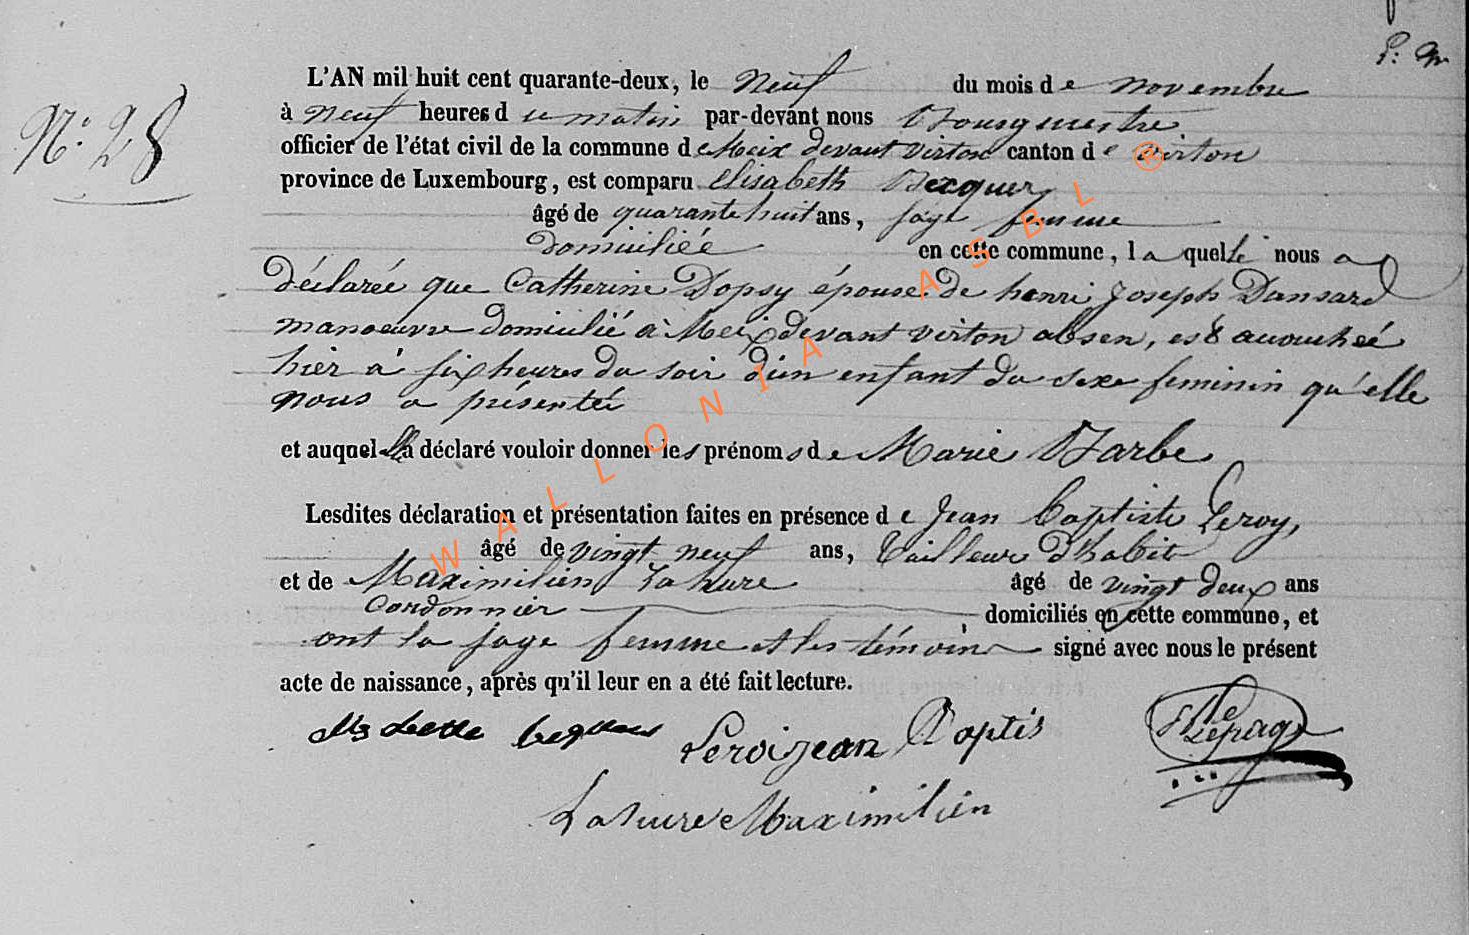 P: M
L'AN mil huit cent quarante-deux, le Neuf du mois de novembre
N.° 28
à neuf heures du matin par-devant nous Bourgmestre
officier de l'état civil de la commune de Meix devant virton canton de virton
province de Luxembourg, est comparu elisabeth Becquer
âgé de quarante huit ans, sage femme
domiciliée en cette commune, laquelle nous a
déclarée que Catherine Dopsy épouse de henri Joseph Dansard
manoeuvre domicilié à Meix devant virton absen, est accouchée
hier à six heures du soir d'un enfant du sexe feminin qu'elle
nous a présenté
et auquel elle a déclaré vouloir donner les prénoms de Marie Barbe
Lesdites déclaration et présentation faites en présence de Jean Baptiste Leroy,
âgé de vingt neuf ans, tailleur d'habit
et de Maximilien Lahure âgé de vingt deux ans
Cordonnier domiciliés en cette commune, et
ont la sage femme et les témoins signé avec nous le présent
acte de naissance, après qu'il leur en a été fait lecture.
Leroi jean Baptis
Lepage
Lahure Maximilien
WALLONIA ASBL ®